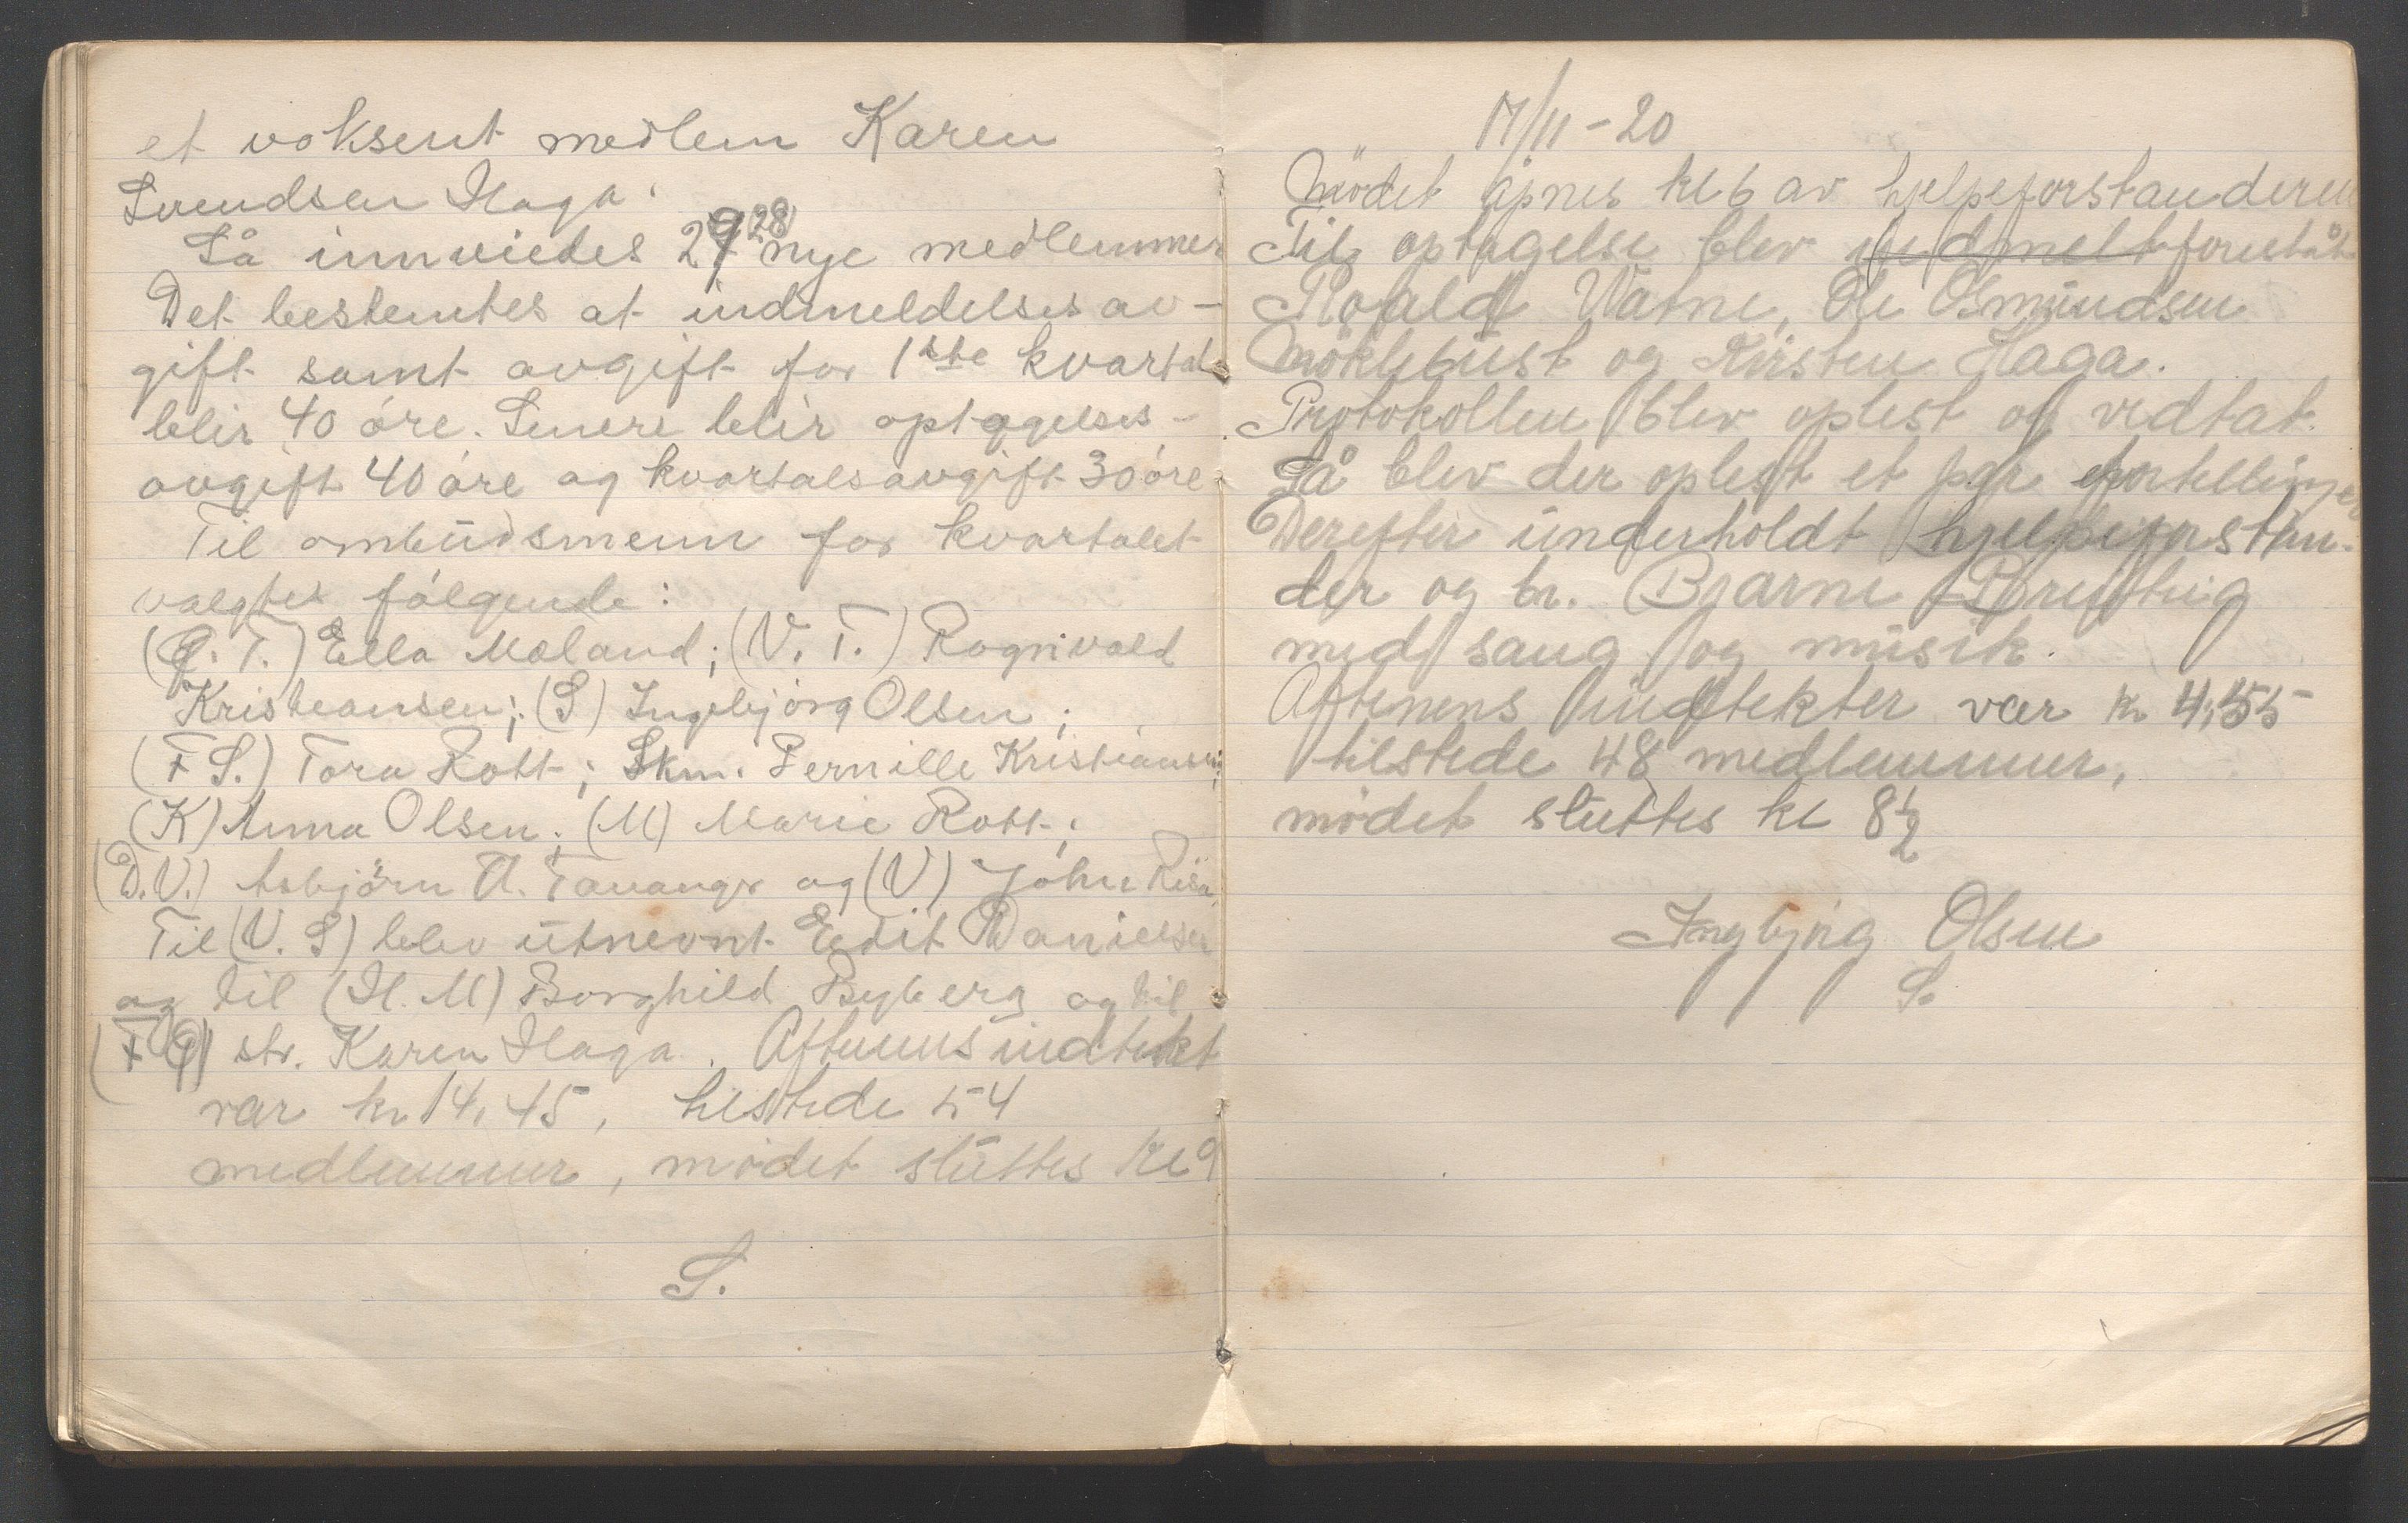 et voksent medlem Karen
Svendsen Haga.
Så innviedes 29 (28) nye medlemmer
Det bestemtes at indmeldelsesav-
gift samt avgift for 1ste kvartal
blir 40 øre. Senere blir optagelses-
avgift 40 øre og kvartalsavgift 30 øre
Til ombudsmenn for kvartalet
valgtes følgende:
T.) Ella Mæland; (V. T.) Ragnvald
Kristiansen; (S) Ingebjørg Olsen;
(F S.) Tora Rott; Skm. Pernille Kristiansen;
(K) Anna Olsen; (M) Marie Rott;
(D.V.) Asbjørn A. Tananger og (V) John Risa.
Til (V. S) blev utnevnt Edit Danielsen
og til (H. M) Borghild Byberg og til
str. Karen Haga. Aftenens indtekt
var kr 14,45, tilstede 54
medlemmer, mødet sluttes kl 9
S.
17/11-20
Mødet åpnes kl 6 av hjelpeforstanderen
Til optagelse blev indmelt forestått
Roald Vatne, Ole Osmundsen
Møklebust og Kirsten Haga.
Protokollen blev oplest og vedtat.
Så blev der oplest et par fortellinger
Derefter underholdt hjelpeforstan-
der og br. Bjarne
med sang og musik.
Aftenens indtekter var kr 4,55
tilstede 48 medlemmer,
mødet sluttes kl 8 1/2
Ingbjørg Olsen
S.